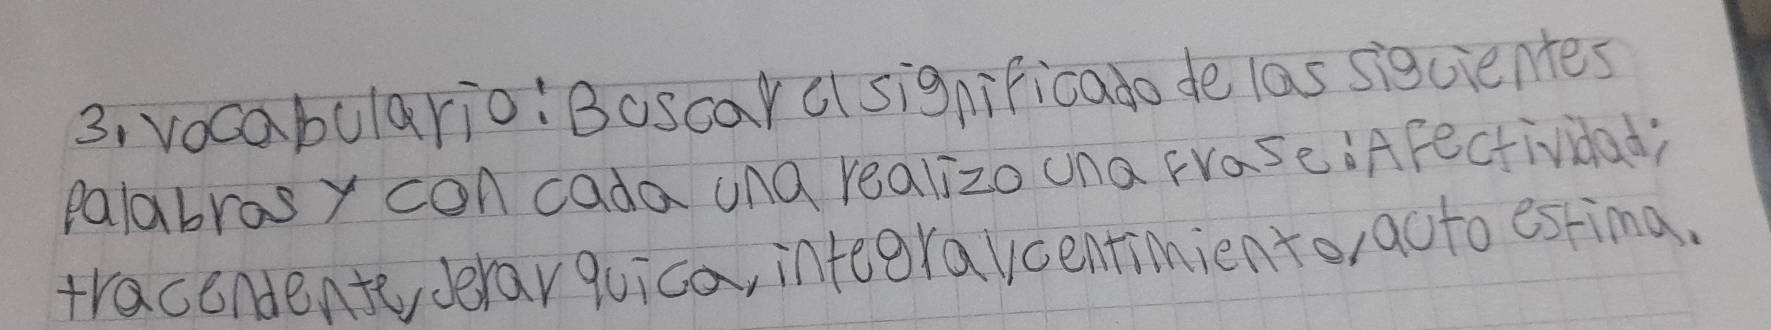 3. Vocabulario: Buscar el significado de las siguientes
palabras y con cada una realizo una frase: Afectividad;
tracendente, Jerarquica, integrar, centimiento, auto estima.